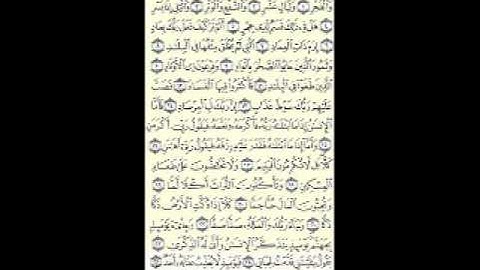 وَٱلْفَجْرِ ١ وَلَيَالٍ عَشْرٍ ٢ وَٱلشَّفْعِ وَٱلْوَتْرِ ٣ وَٱلَّيْلِ إِذَا يَسْرِ
٤ هَلْ فِى ذَٰلِكَ قَسَمٌ لِّذِى حِجْرٍ ٥ أَلَمْ تَرَ كَيْفَ فَعَلَ رَبُّكَ بِعَادٍ
٦ إِرَمَ ذَاتِ ٱلْعِمَادِ ٧ ٱلَّتِى لَمْ يُخْلَقْ مِثْلُهَا فِى ٱلْبِلَٰدِ
٨ وَثَمُودَ ٱلَّذِينَ جَابُوا۟ ٱلصَّخْرَ بِٱلْوَادِ ٩ وَفِرْعَوْنَ ذِى ٱلْأَوْتَادِ ١٠
ٱلَّذِينَ طَغَوْا۟ فِى ٱلْبِلَٰدِ ١١ فَأَكْثَرُوا۟ فِيهَا ٱلْفَسَادَ ١٢ فَصَبَّ
عَلَيْهِمْ رَبُّكَ سَوْطَ عَذَابٍ ١٣ إِنَّ رَبَّكَ لَبِٱلْمِرْصَادِ ١٤ فَأَمَّا
ٱلْإِنسَٰنُ إِذَا مَا ٱبْتَلَىٰهُ رَبُّهُۥ فَأَكْرَمَهُۥ وَنَعَّمَهُۥ فَيَقُولُ رَبِّىٓ أَكْرَمَنِ
١٥ وَأَمَّآ إِذَا مَا ٱبْتَلَىٰهُ فَقَدَرَ عَلَيْهِ رِزْقَهُۥ فَيَقُولُ رَبِّىٓ أَهَٰنَنِ
١٦ كَلَّا بَل لَّا تُكْرِمُونَ ٱلْيَتِيمَ ١٧ وَلَا تَحَٰٓضُّونَ عَلَىٰ طَعَامِ
ٱلْمِسْكِينِ ١٨ وَتَأْكُلُونَ ٱلتُّرَاثَ أَكْلًا لَّمًّا ١٩
وَتُحِبُّونَ ٱلْمَالَ حُبًّا جَمًّا ٢٠ كَلَّآ إِذَا دُكَّتِ ٱلْأَرْضُ دَكًّا
دَكًّا ٢١ وَجَآءَ رَبُّكَ وَٱلْمَلَكُ صَفًّا صَفًّا ٢٢ وَجِا۟ىٓءَ يَوْمَئِذٍۭ
بِجَهَنَّمَ يَوْمَئِذٍ يَتَذَكَّرُ ٱلْإِنسَٰنُ وَأَنَّىٰ لَهُ ٱلذِّكْرَىٰ ٢٣
يَقُولُ يَٰلَيْتَنِى قَدَّمْتُ لِحَيَاتِى ٢٤ فَيَوْمَئِذٍ لَّا يُعَذِّبُ عَذَابَهُۥٓ أَحَدٌ ٢٥